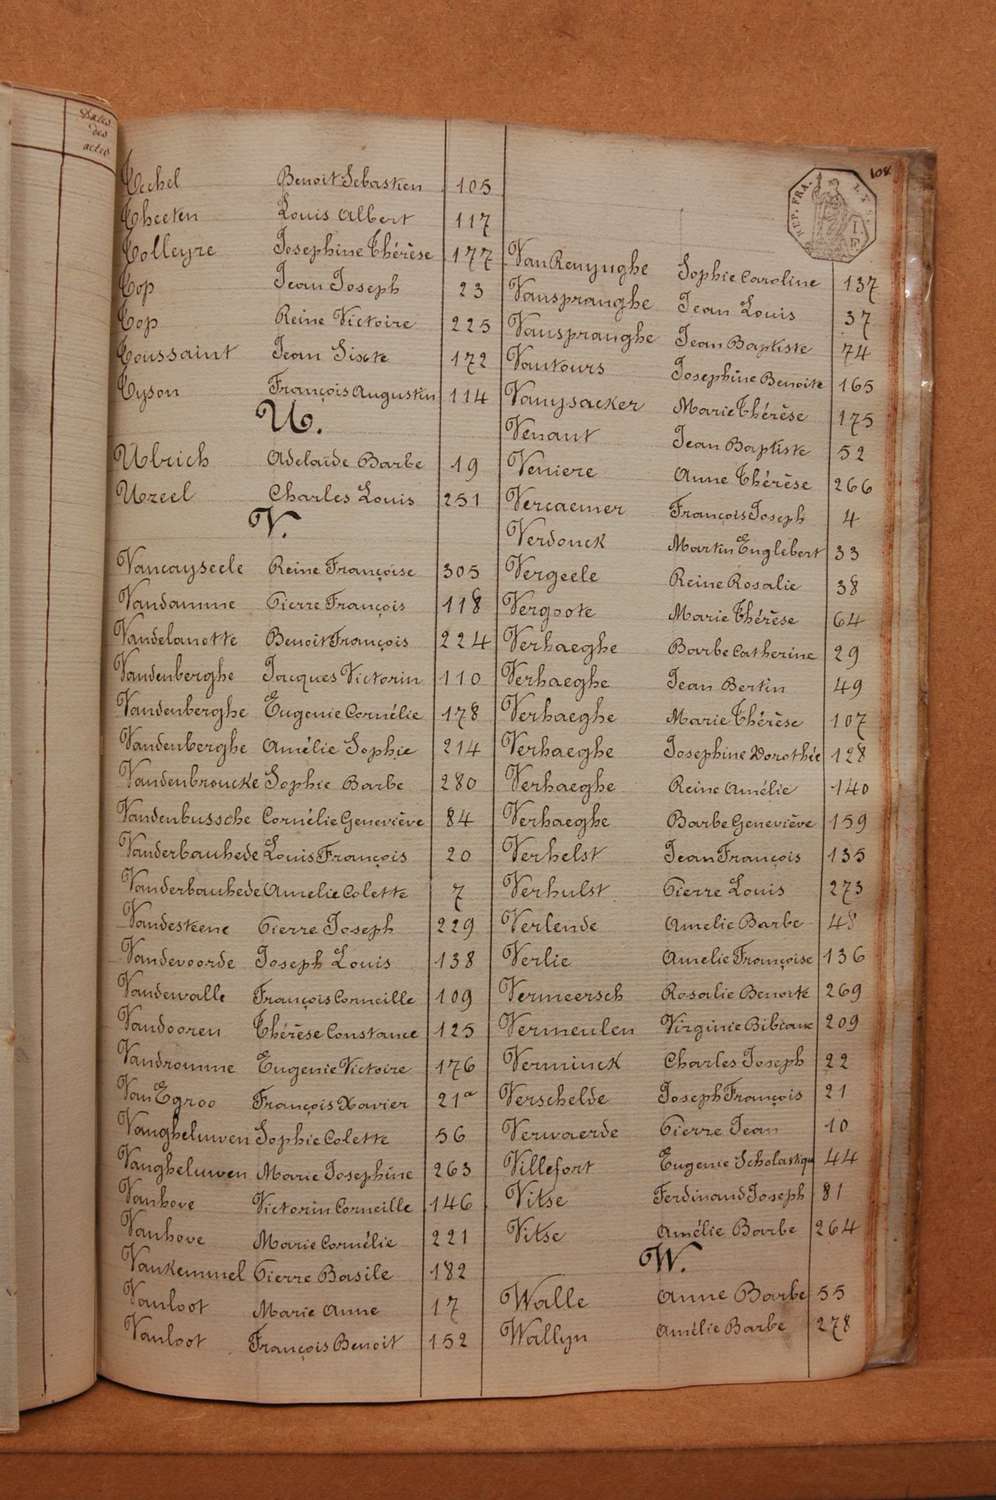 Dates
des
actes
108
REP. FRA.
1 F
Techel Benoit Sebastien 105
Theeten Louis Albert 117
Tolleyre Josephine Thérèse 177
Top Jean Joseph 23
Top Reine Victoire 225
Toussaint Jean Sixte 172
Tyson François Augustin 114
U.
Ulrich Adelaïde Barbe 19
Uzeel Charles Louis 251
V.
Vancayseele Reine Françoise 305
Vandamme Pierre François 118
Vandelanotte Benoit François 224
Vandenberghe Jacques Victorin 110
Vandenberghe Eugenie Cornélie 178
Vandenberghe Amélie Sophie 214
Vandenbroucke Sophie Barbe 280
Vandenbussche Cornélie Geneviève 84
Vanderbauhede Louis François 20
Vanderbauhede Amelie Colette 7
Vandesteene Pierre Joseph 229
Vandevoorde Joseph Louis 138
Vandewalle François Corneille 109
Vandooren Thérèse Constance 125
Vandromme Eugenie Victoire 176
Van Egroo François Xavier 21a
Vangheluwen Sophie Colette 56
Vangheluwen Marie Josephine 263
Vanhove Victorin Corneille 146
Vanhove Marie Cornélie 221
Vankemmel Pierre Basile 182
Vanloot Marie Anne 17
Vanloot François Benoit 152
Van Renynghe Sophie Caroline 137
Vanspranghe Jean Louis 37
Vanspranghe Jean Baptiste 74
Vantours Josephine Benoite 165
Vanysacker Marie Thérèse 175
Venant Jean Baptiste 52
Veniere Anne Thérèse 266
Vercaemer François Joseph 4
Verdonck Martin Englebert 33
Vergeele Reine Rosalie 38
Vergoote Marie Thérèse 64
Verhaeghe Barbe Catherine 29
Verhaeghe Jean Bertin 49
Verhaeghe Marie Thérèse 107
Verhaeghe Josephine Dorothée 128
Verhaeghe Reine Amélie 140
Verhaeghe Barbe Geneviève 159
Verhelst Jean François 135
Verhulst Pierre Louis 273
Verlende Amelie Barbe 48
Verlie Amelie Françoise 136
Vermeersch Rosalie Benoite 269
Vermeulen Virginie Bibiane 209
Verminck Charles Joseph 22
Verschelde Joseph François 21
Verwaerde Pierre Jean 10
Villefort Eugenie Scholastique 44
Vitse Ferdinand Joseph 81
Vitse Amélie Barbe 264
W.
Walle Anne Barbe 55
Wallyn Amélie Barbe 278